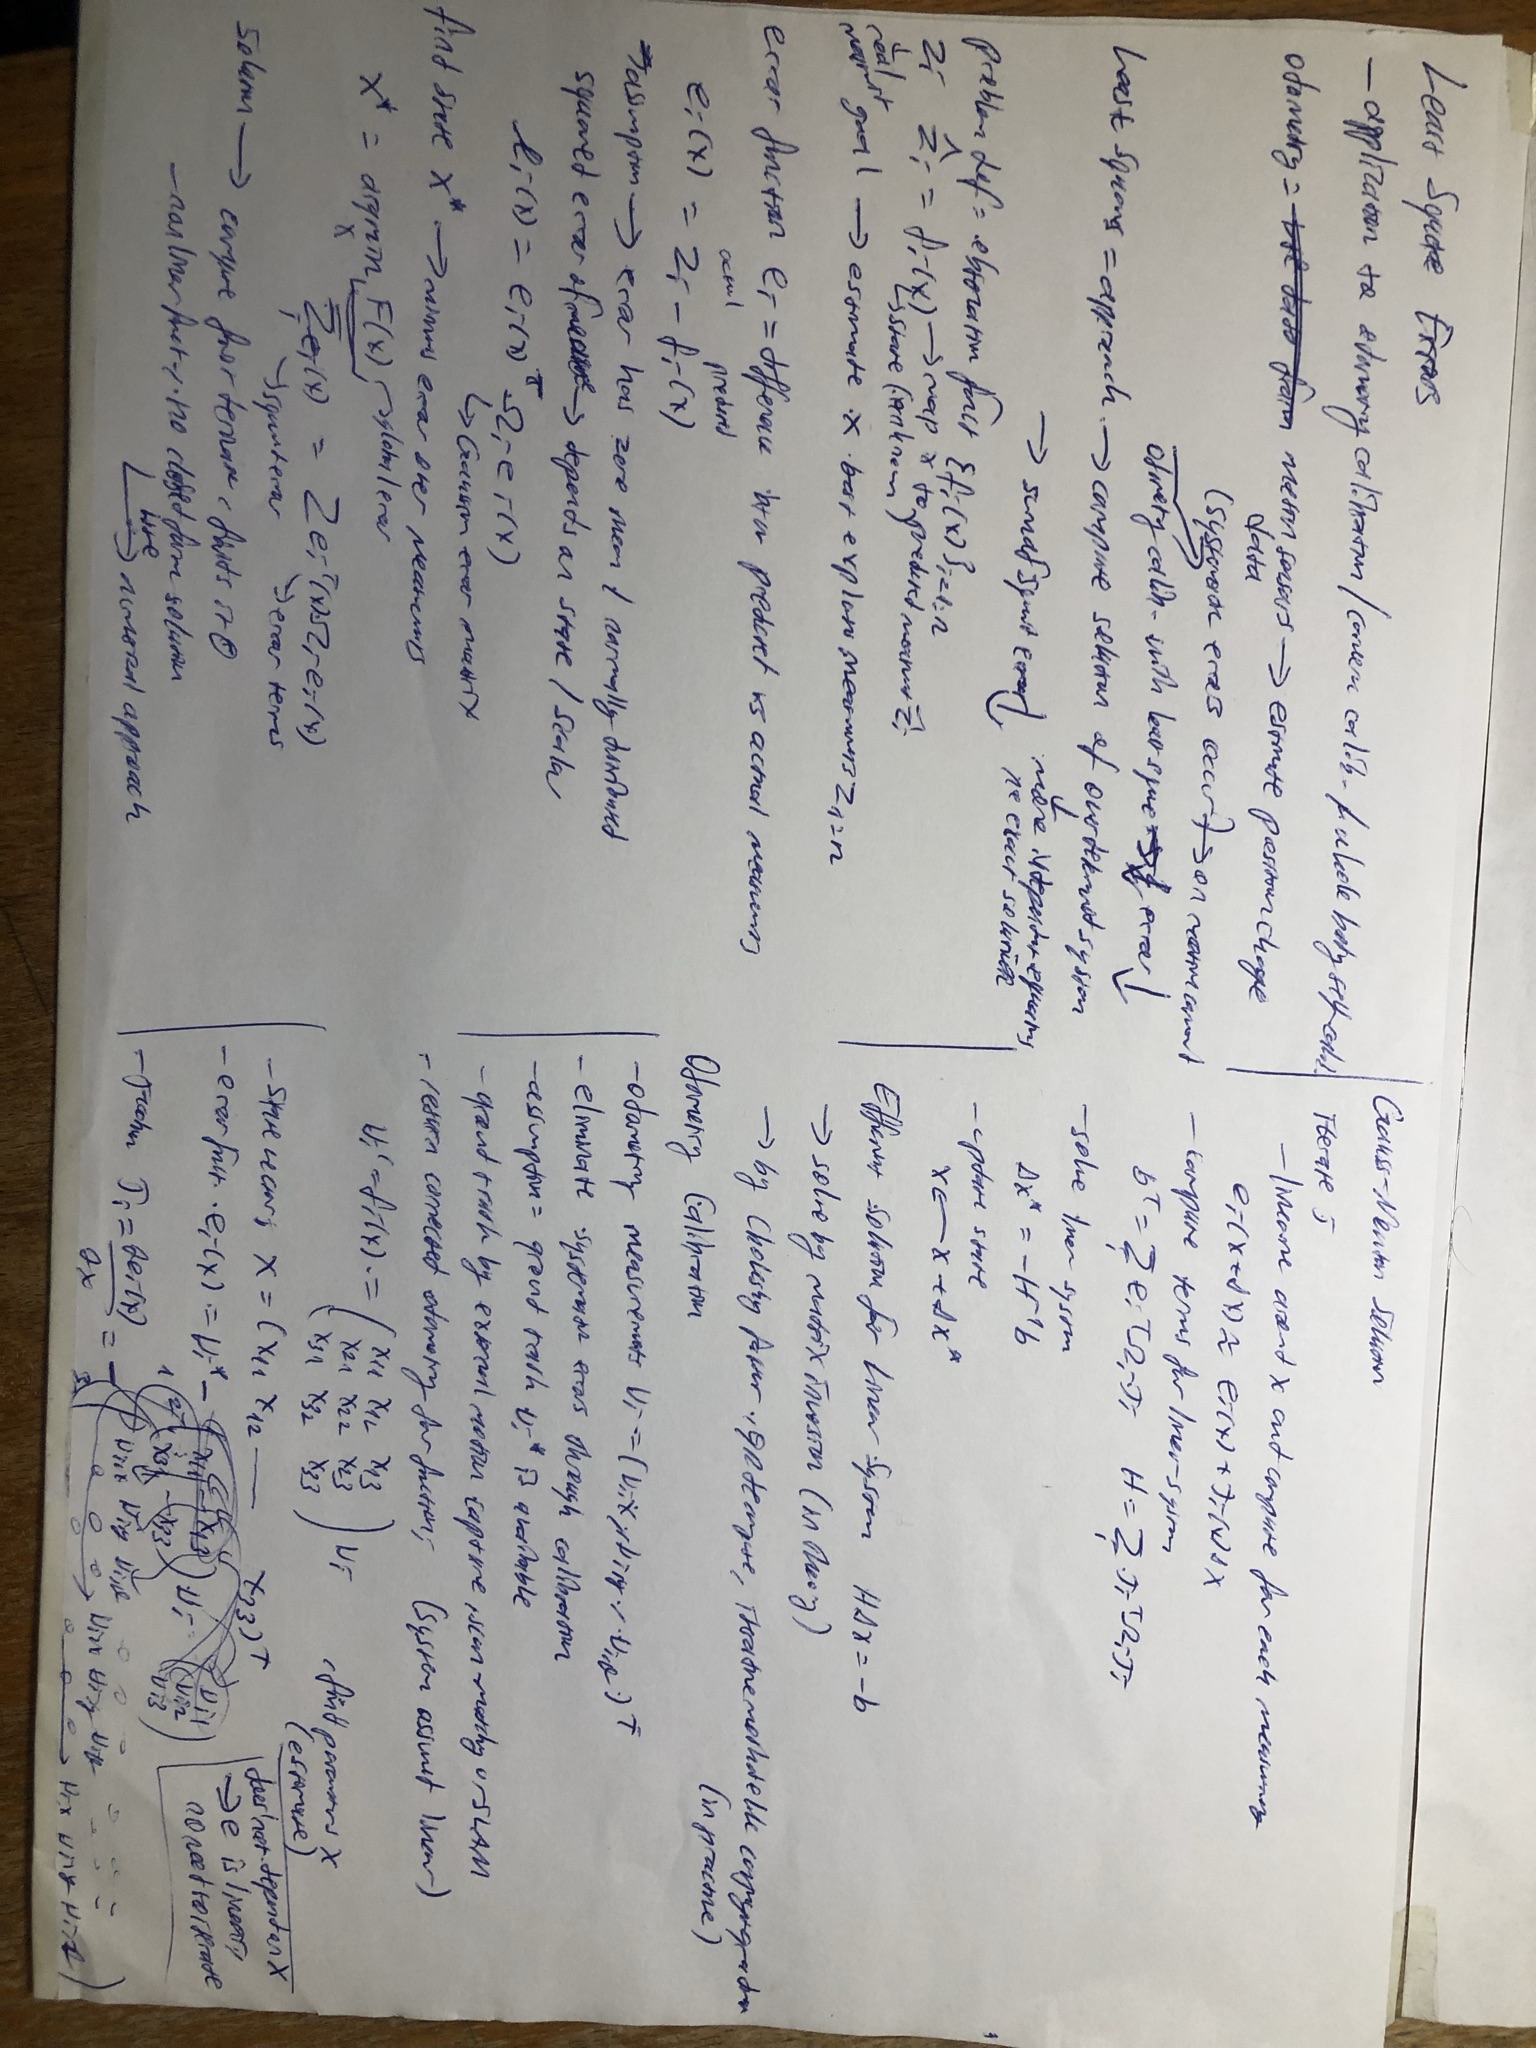 Least Square Errors
- application to odometry calibration / camera calib. / whole body self-calib.
odometry = motion sensors data → estimate position change
(systematic errors occur) → on
odometry calib. with least square error
Least squares = approach → compute solution of overdetermined system
→ sum of squared error
more independent equations
no exact solution
problem def = observation funct {fi(x)}i=1:n
zi ẑi = fi(x) → map x to predicted measurm ẑi
real measurmt
state (unknown)
goal → estimate x best explains measurms z1:n
error function ei = difference btw predicted vs actual measurms
actual predicted
ei(x) = zi - fi(x)
assumption → error has zero mean / normally distributed
squared error of → depends on state / scalar
ei(x) = ei(x)^T Ωi ei(x)
↳ Gaussian error matrix
find state x* → minimizes error over measurms
x* = argmin F(x) → global error
x
Σ ei(x) = Σ ei^T(x) Ωi ei(x)
i
squared error error terms
solution → compute first derivative, finds it 0
- nonlinear funct → no closed form solution
use
numerical approach
Gauss-Newton Solution
Iterate :
- linearize around x and compute for each measurmt
ei(x+Δx) ≈ ei(x) + Ji(x) Δx
- compute terms for linear system
b^T = Σ ei^T Ωi Ji H = Σ Ji^T Ωi Ji
- solve linear system
Δx* = -H^-1 b
- update state
x ← x + Δx*
Efficient solution for linear system HΔx = -b
→ solve by matrix inversion (in theory)
→ by Cholesky factor., QR decompose, iterative methods e.g. conjugate gradien
(in practice)
Odometry Calibration
- odometry measurements ui = (ui,x, ui,y, ui,θ)^T
- eliminate systematic errors through calibration
- assumption = ground truth ui* is available
- ground truth by external motion capture, scan matching or SLAM
- return corrected odometry for function, (system assumed linear)
ui' = fi(x) = ( x11 x12 x13
x21 x22 x23
x31 x32 x33 ) ui
, find parameters x
(estimate)
- State vectors x = (x11 x12 — x33)^T
- error funct. ei(x) = ui* -
( x11 x13
x33 ) ui
ui1
ui2
ui3
- Jacobian Ji = ∂ei(x) / ∂x = -
( ui,x ui,y ui,θ 0 0 0 0 0 0
0 0 0 ui,x ui,y ui,θ 0 0 0
0 0 0 ui,x ui,y ui,θ )
does not depend on x
→ e is linear,
no need to iterate